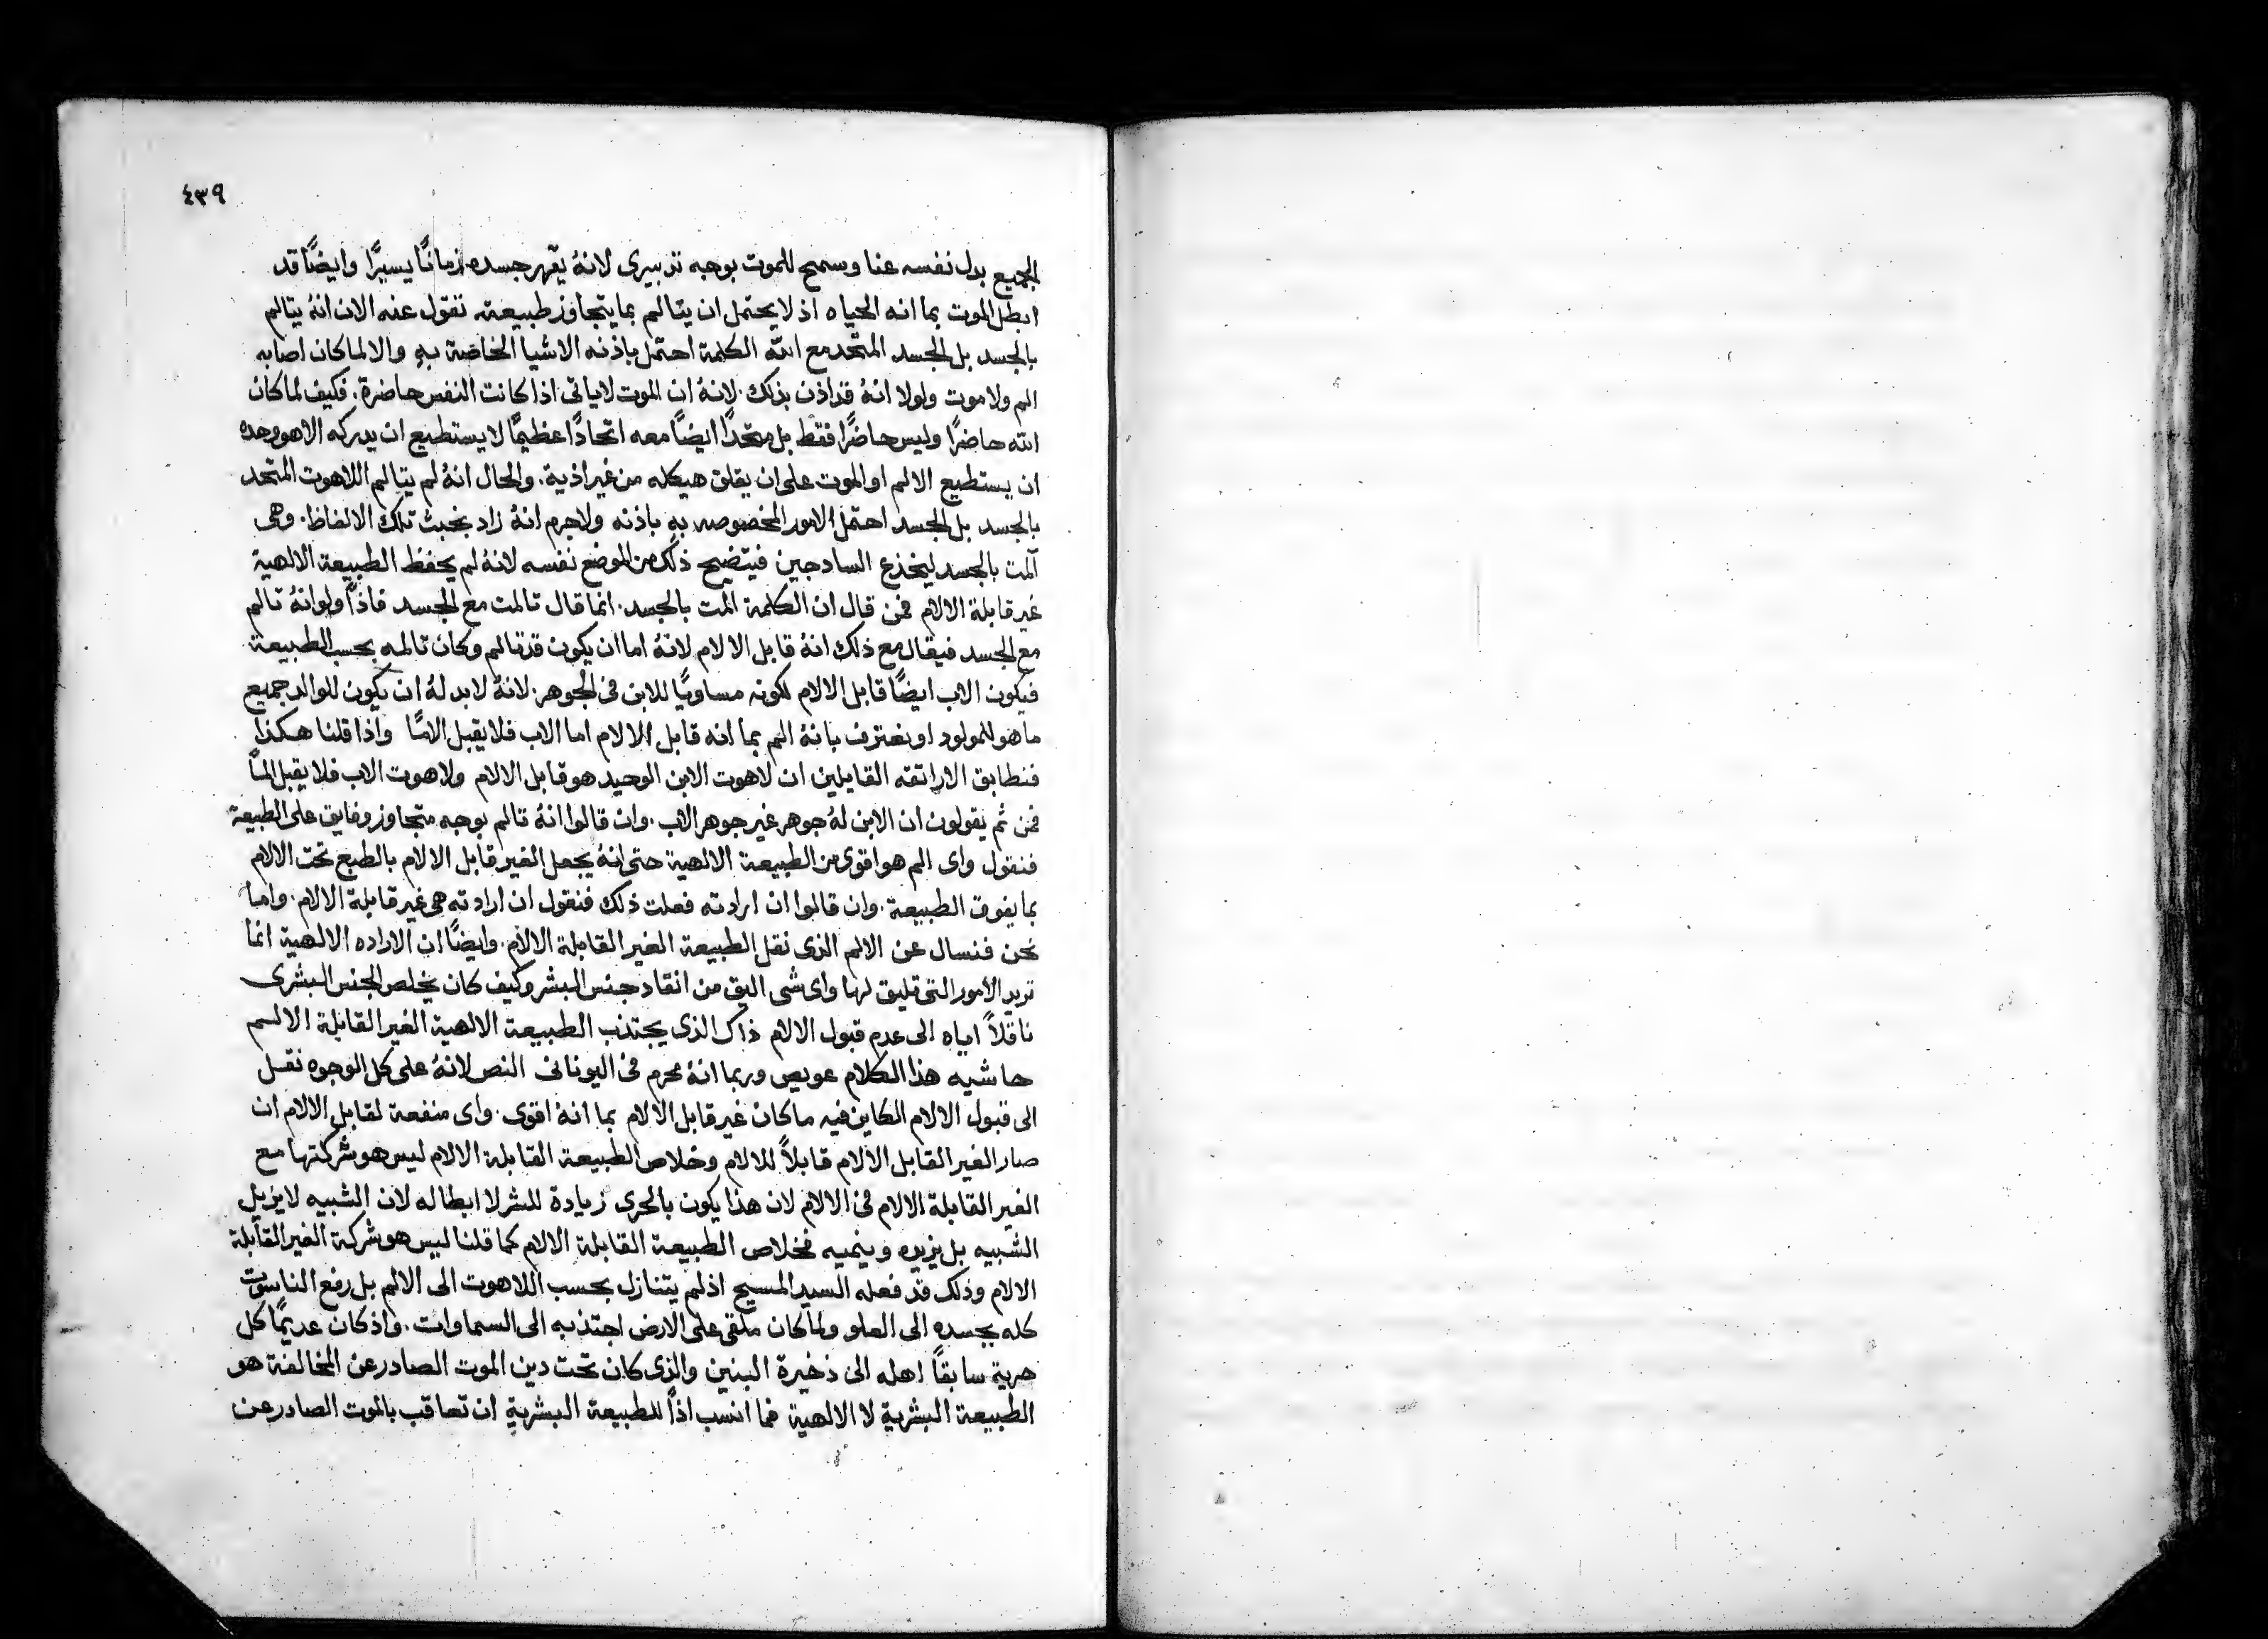 ٤٣٩
الجميع بدل نفسه عنا وسمح للموت بوجه تدبيرى لانهُ يقهر جسده زمانًا يسيرًا وايضًا قد
ابطل الموت بما انه الحياه اذ لا يحتمل ان يتالم بما يتجاوز طبيعته نقول عنه الان انهُ يتالم
بالجسد بل الجسد المتحد مع الله الكلمة احتمل باذنه الاشيا الخاصة بهِ والا لما كان اصابه
الم ولا موت ولولا انهُ قد اذن بذلك. لانهُ ان الموت لا ياتى اذا كانت النفس حاضرة. فكيف لما كان
الله حاضرًا وليس حاضرًا فقط بل متحدًا ايضًا معه اتحادًا عظيمًا لا يستطيع ان يدركه الا هو وحده
ان يستطيع الالم او الموت على ان يقلق هيكله من غير اذية. والحال انهُ لم يتالم اللاهوت المتحد
بالجسد بل الجسد احتمل الامور المخصوصه بهِ باذنه ولا جرم انهُ زاد بخبث تلك الالفاظ. وهى
آلمت بالجسد ليخدع السادجين فيتضح ذلك من الموضع نفسه لانهُ لم يحفظ الطبيعة الالهية
غير قابلة الالام فمن قال ان الكلمة المت بالجسد. انما قال تالمت مع الجسد فاذًا ولو انهُ تالم
مع الجسد فيقال مع ذلك انهُ قابل الالام لانهُ اما ان يكون قد تالم وكان تالمه بحسب الطبيعة
فيكون الاب ايضًا قابل الالام لكونه مساويًا للابن فى الجوهر. لانهُ لابد لهُ ان يكون للوالد جميع
ما هو للمولود او نعترف بانهُ الم بما انه قابل الالام اما الاب فلا يقبل الامًا واذا قلنا هكذا
فنطابق الاراتقه القايلين ان لاهوت الابن الوحيد هو قابل الالام ولاهوت الاب فلا يقبل المًا
فمن ثم يقولون ان الابن لهُ جوهر غير جوهر الاب. وان قالوا انهُ تالم بوجه متجاوز وفايق على الطبيعة
فنقول واى الم هو اقوى من الطبيعة الالهية حتى انهُ يجعل الغير قابل الالام بالطبع تحت الالام
بما يفوق الطبيعة. وان قالوا ان ارادته فعلت ذلك فنقول ان ارادته هى غير قابلة الالام. واما
نحن فنسال عن الالم الذى نقل الطبيعة الغير القابلة الالام. وايضًا ان الاراده الالهية انما
تريد الأمور التى تليق لها واى شى اليق من انقاد جنس البشر وكيف كان يخلص الجنس البشرى
ناقلاً اياه الى عدم قبول الالام ذاك الذى يجتذب الطبيعة الالهية الغير القابلة الالم
حاشيه هذا الكلام عويص وربما انهُ محرم فى اليونانى النص لانهُ على كل الوجوه نقل
الى قبول الالام الكاين فيه ما كان غير قابل الالام بما انهُ اقوى. واى منفعة لقابل الالام ان
صار الغير القابل الالام قابلاً للالام وخلاص الطبيعة القابلة الالام ليس هو شركتها مع
الغير القابلة الالام فى الالام لان هذا يكون بالحرى زيادة للشر لا ابطاله لان الشبيه لا يزيل
الشبيه بل يزيده وينميه فخلاص الطبيعة القابلة الالام كما قلنا ليس هو شركة الغير القابلة
الالام وذلك قد فعله السيد المسيح اذ لم يتنازل بحسب اللاهوت الى الالم بل رفع الناسوت
كله بجسده الى العلو ولما كان ملقى على الارض اجتذبه الى السماوات. واذ كان عديمًا كل
حرية سابقًا اهله الى ذخيرة البنين والذى كان تحت دين الموت الصادر عن المخالفة هو
الطبيعة البشرية لا الالهية فما انسب اذًا للطبيعة البشرية ان تعاقب بالموت الصادر عن